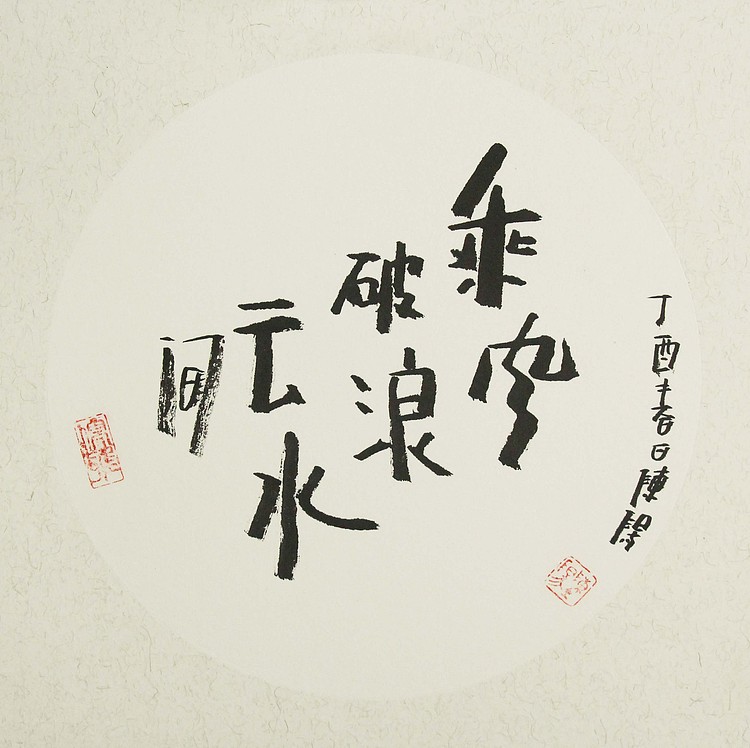 乘风
破浪
云水
间
丁酉年春日陳